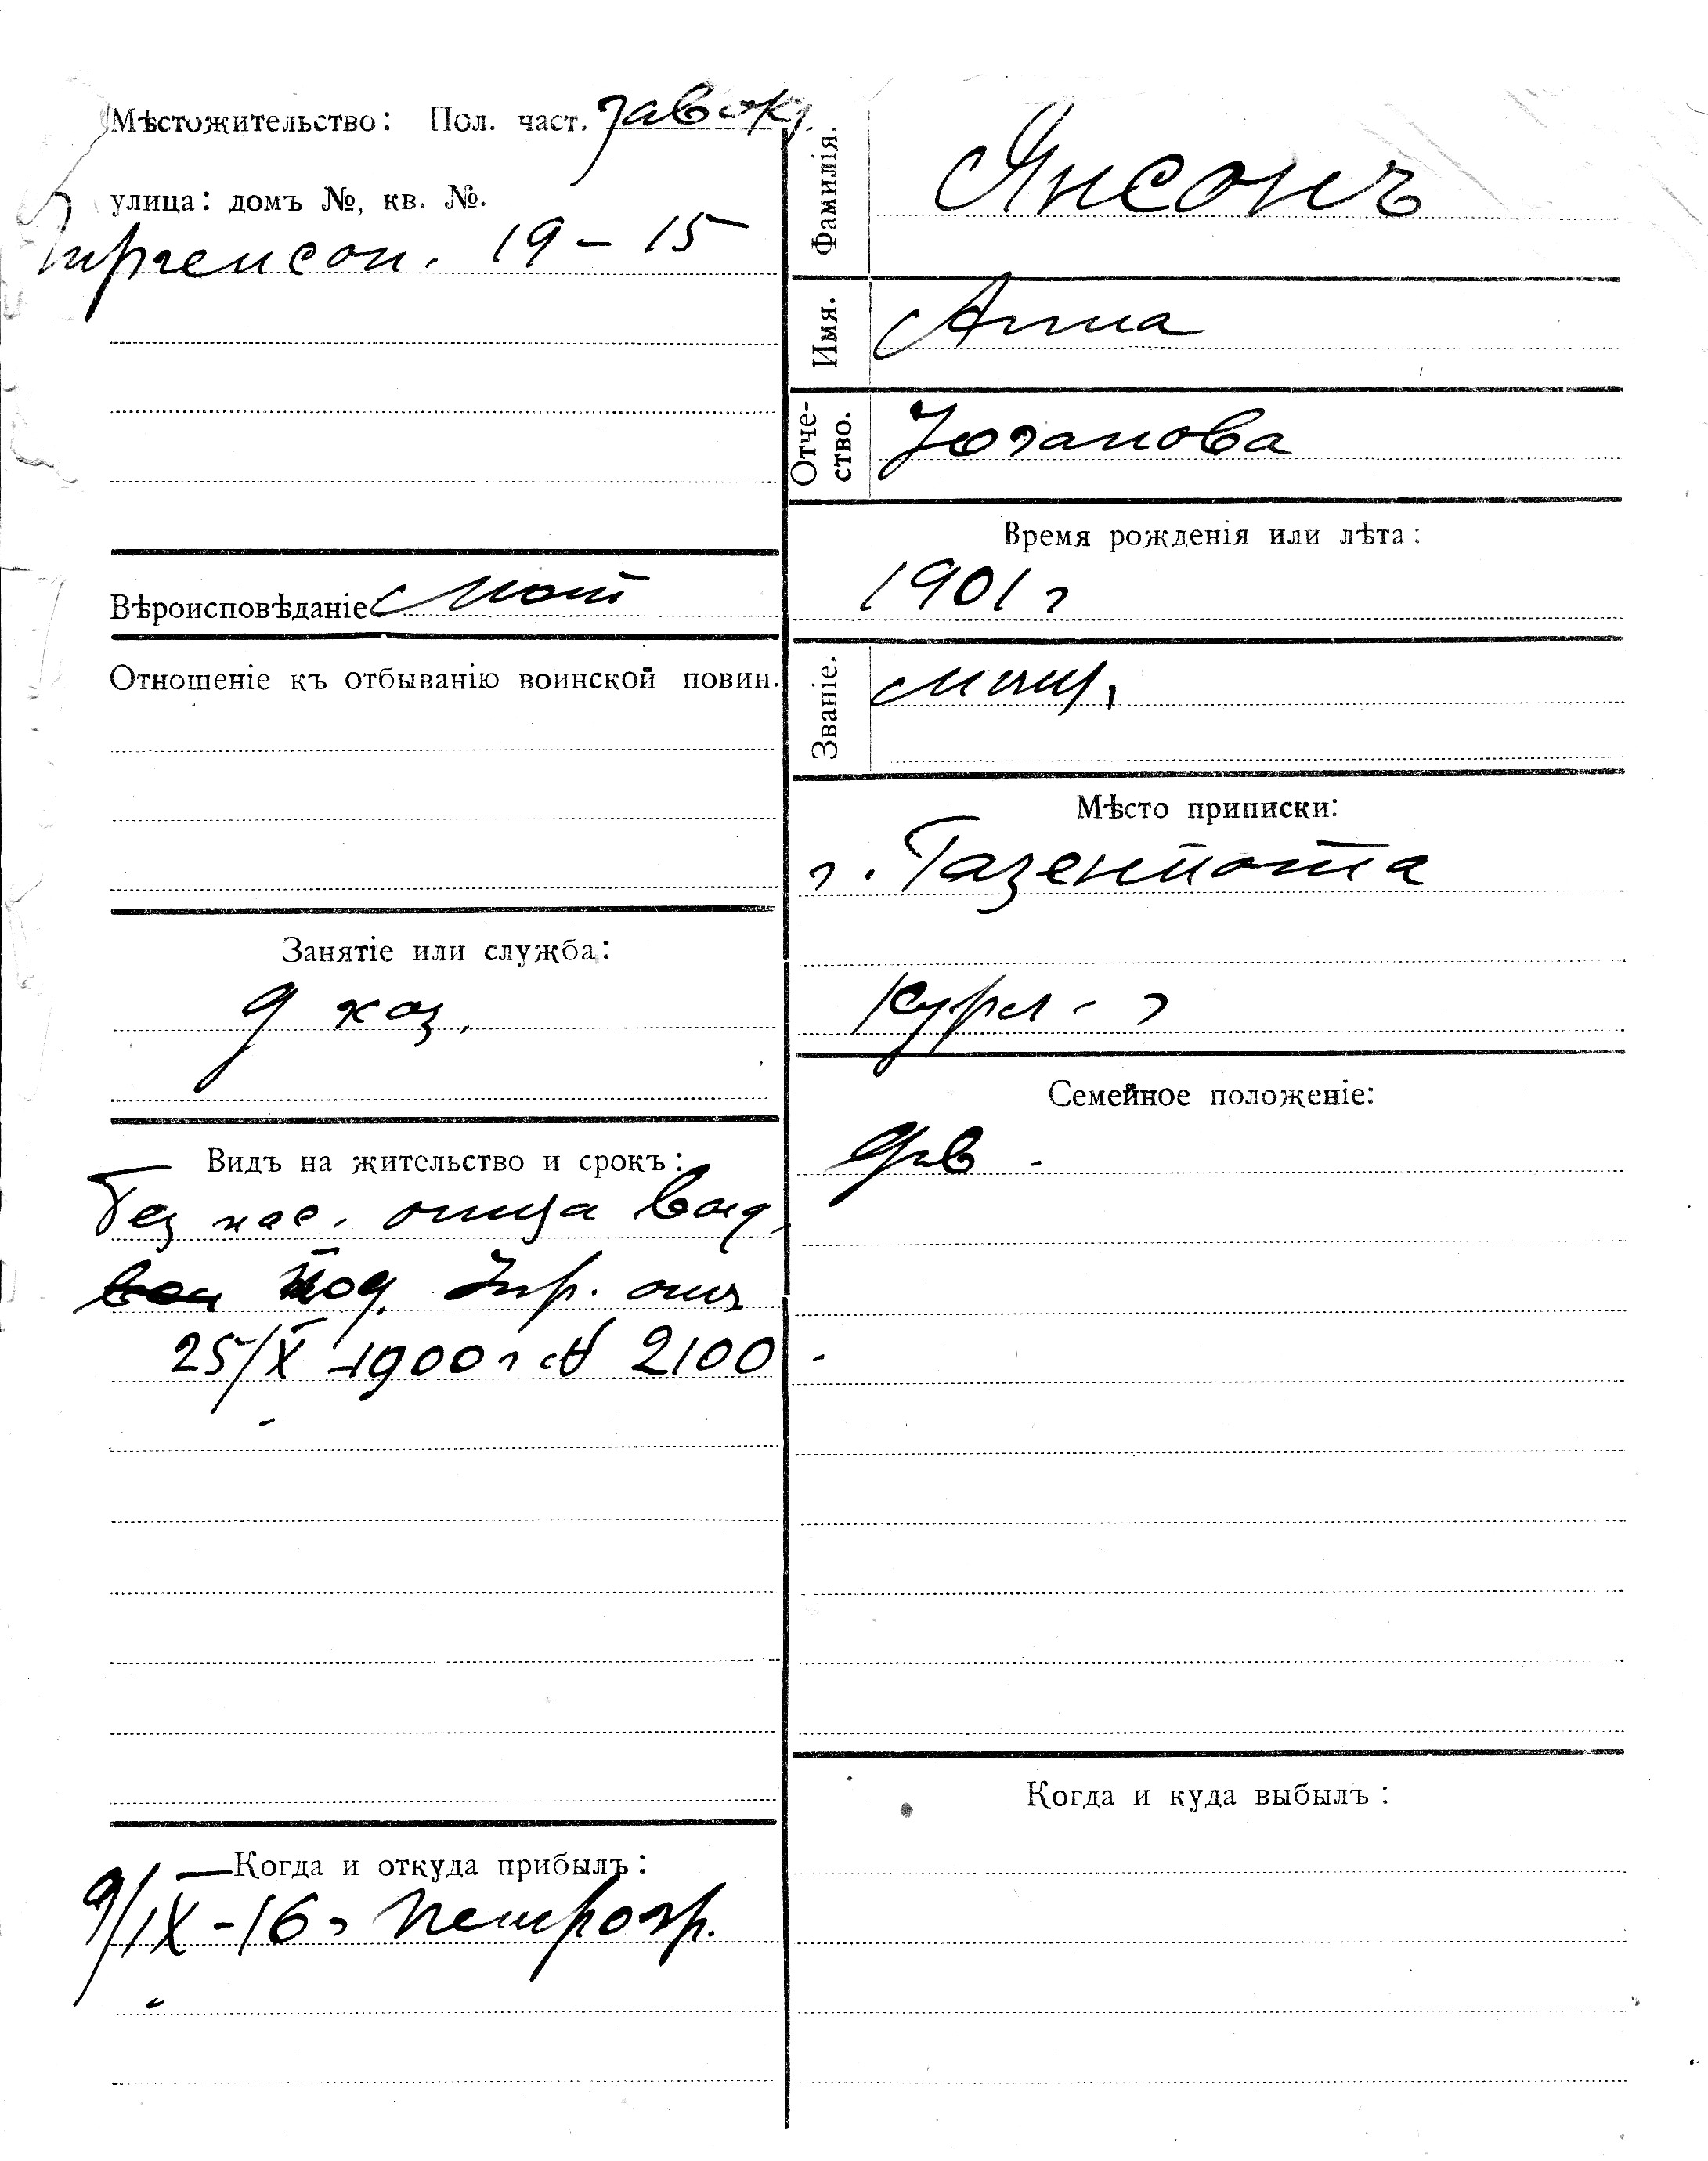 Мѣстожительство: Пол. част. завокз.
улица: домъ №, кв. №.
Юргенсон. 19 – 15
Вѣроисповѣданіе лют
Отношеніе къ отбыванію воинской повин.
Занятіе или служба:
д хоз.
Видъ на жительство и срокъ:
Без пас. отца выд.
под. Упр. отъ
25/X 1900 г № 2100
Когда и откуда прибылъ:
9/IX – 16 г Петрогр.
Фамилія.
Янсонъ
Имя.
Анна
Отче-
ство.
Юганова
Время рожденія или лѣта:
1901 г
Званіе.
мѣщ.
Мѣсто приписки:
г. Газенпота
Курл. г
Семейное положеніе:
дѣв.
Когда и куда выбылъ: